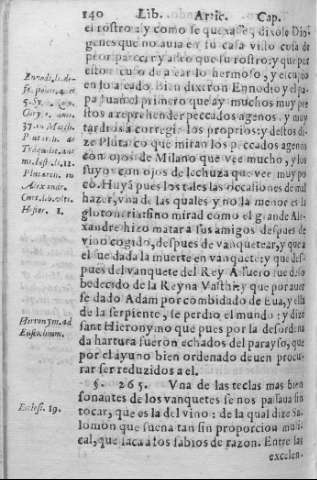 140 Lib. Artic. Cap.
el rostro: y como se quexasse, dixole Dio-
genes que no auia en su casa visto cosa de
peor parecer y asco que su rostro; y que por
estar cosa de asear lo hermoso, y el suyo
en lo aseado. Bien dixeron Ennodio y el pa-
pa Iuan el primero que ay muchos muy pre
stos a reprehender peccados agenos, y muy
tardios a corregir los proprios: y destos di-
ze Plutarco que miran los peccados agenos
con ojos de Milano que vee mucho, y los
suyos con ojos de lechuza que vee muy po
co. Huyã pues los tales las occasiones de mal
hazer, vna de las quales y no la menor es la
glotoneria: sino mirad como el grande Ale-
xandre hizo matar a sus amigos despues de
vino cogido, despues de vanquetear, y que a
el fue dada la muerte en vanquete: y que des
pues del vanquete del Rey Asuero fue deso
bedecido de la Reyna Vasthi: y que por auer
se dado Adam por combidado de Eua, y ella
de la serpiente, se perdio el mundo: y dize
sant Hieronymo que pues por la desordena
da hartura fueron echados del parayso, que
por el ayuno bien ordenado deuen procu-
rar ser reduzidos a el.
§. 265. Vna de las teclas mas bien
sonantes de los vanquetes se nos passaua sin
tocar, que es la del vino: de la qual dize Sa-
lomon que suena tan sin proporcion musi-
cal, que saca a los sabios de razon. Entre las
excelen.
Ennodi. li. de-
5. Sy.
37.
Plutar. li. de
Tranquilit. ani
mi.
Plutarcu. in
Alexandr.
Curt. lib. vlti.
Hester. 1.
Hieronym. ad
Eustochium.
Eclesi. 19.